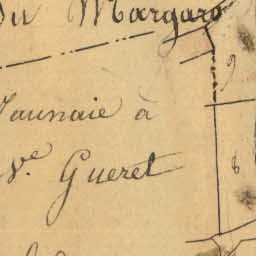 du Margaro
9
Jaunaie à
Ve Gueret
8